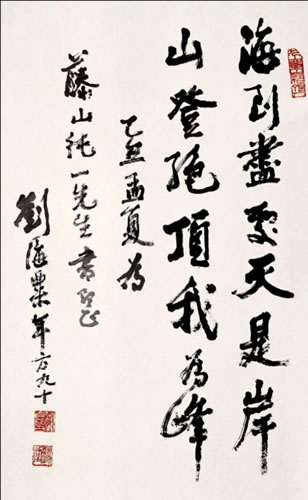 海到盡处天是岸
山登絶頂我為峰
乙丑孟夏為
藤山純一先生書正
劉海粟年方九十